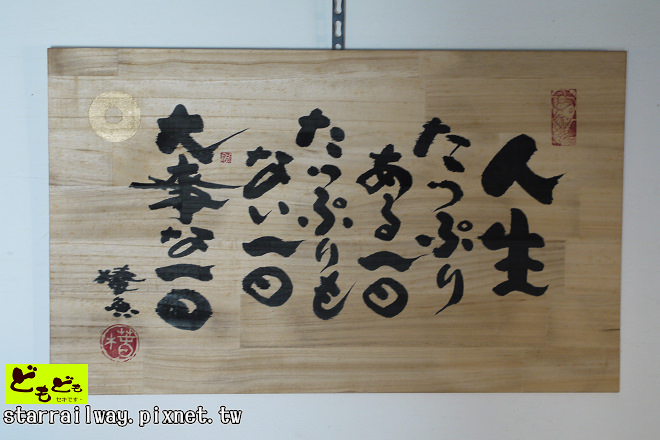 人生
たっぷり
ある一日
たっぷりも
ない一日
大事な一日
どもども
セキです。
starrailway.pixnet.tw